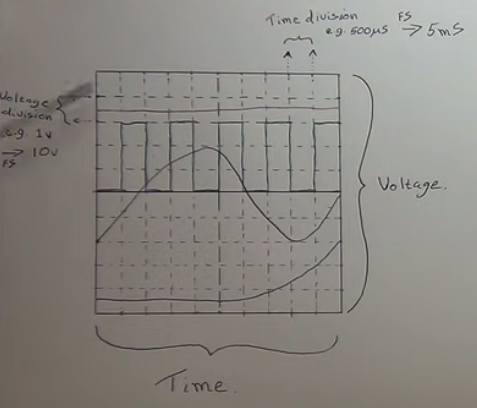 Time division
e.g. 500µS FS → 5mS
Voltage
division
e.g. 1v
→ 10v
FS
Voltage.
Time.